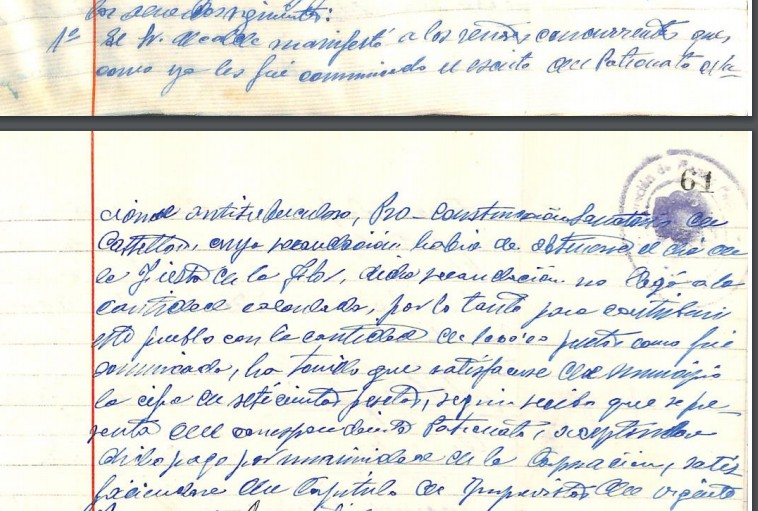 los acuerdos siguientes:
1º El Sr. Alcalde manifestó a los señores concurrentes que,
como ya les fué comunicado el escrito del Patronato
61
antituberculoso, Pro-Construcción Sanatorio en
Castellón, cuya recaudación había de obtenerse el día de
la Fiesta de la Flor, dicha recaudación no llegó a la
cantidad calculada, por lo tanto para contribuir
este pueblo con la cantidad de pesetas como fué
comunicado, ha tenido que satisfacerse del Municipio
la cifra de setecientas pesetas, según recibo que se pre-
senta del correspondiente Patronato, aceptándose
dicho pago por unanimidad de la Corporación, satis-
faciéndose del Capítulo de Imprevistos del vigente